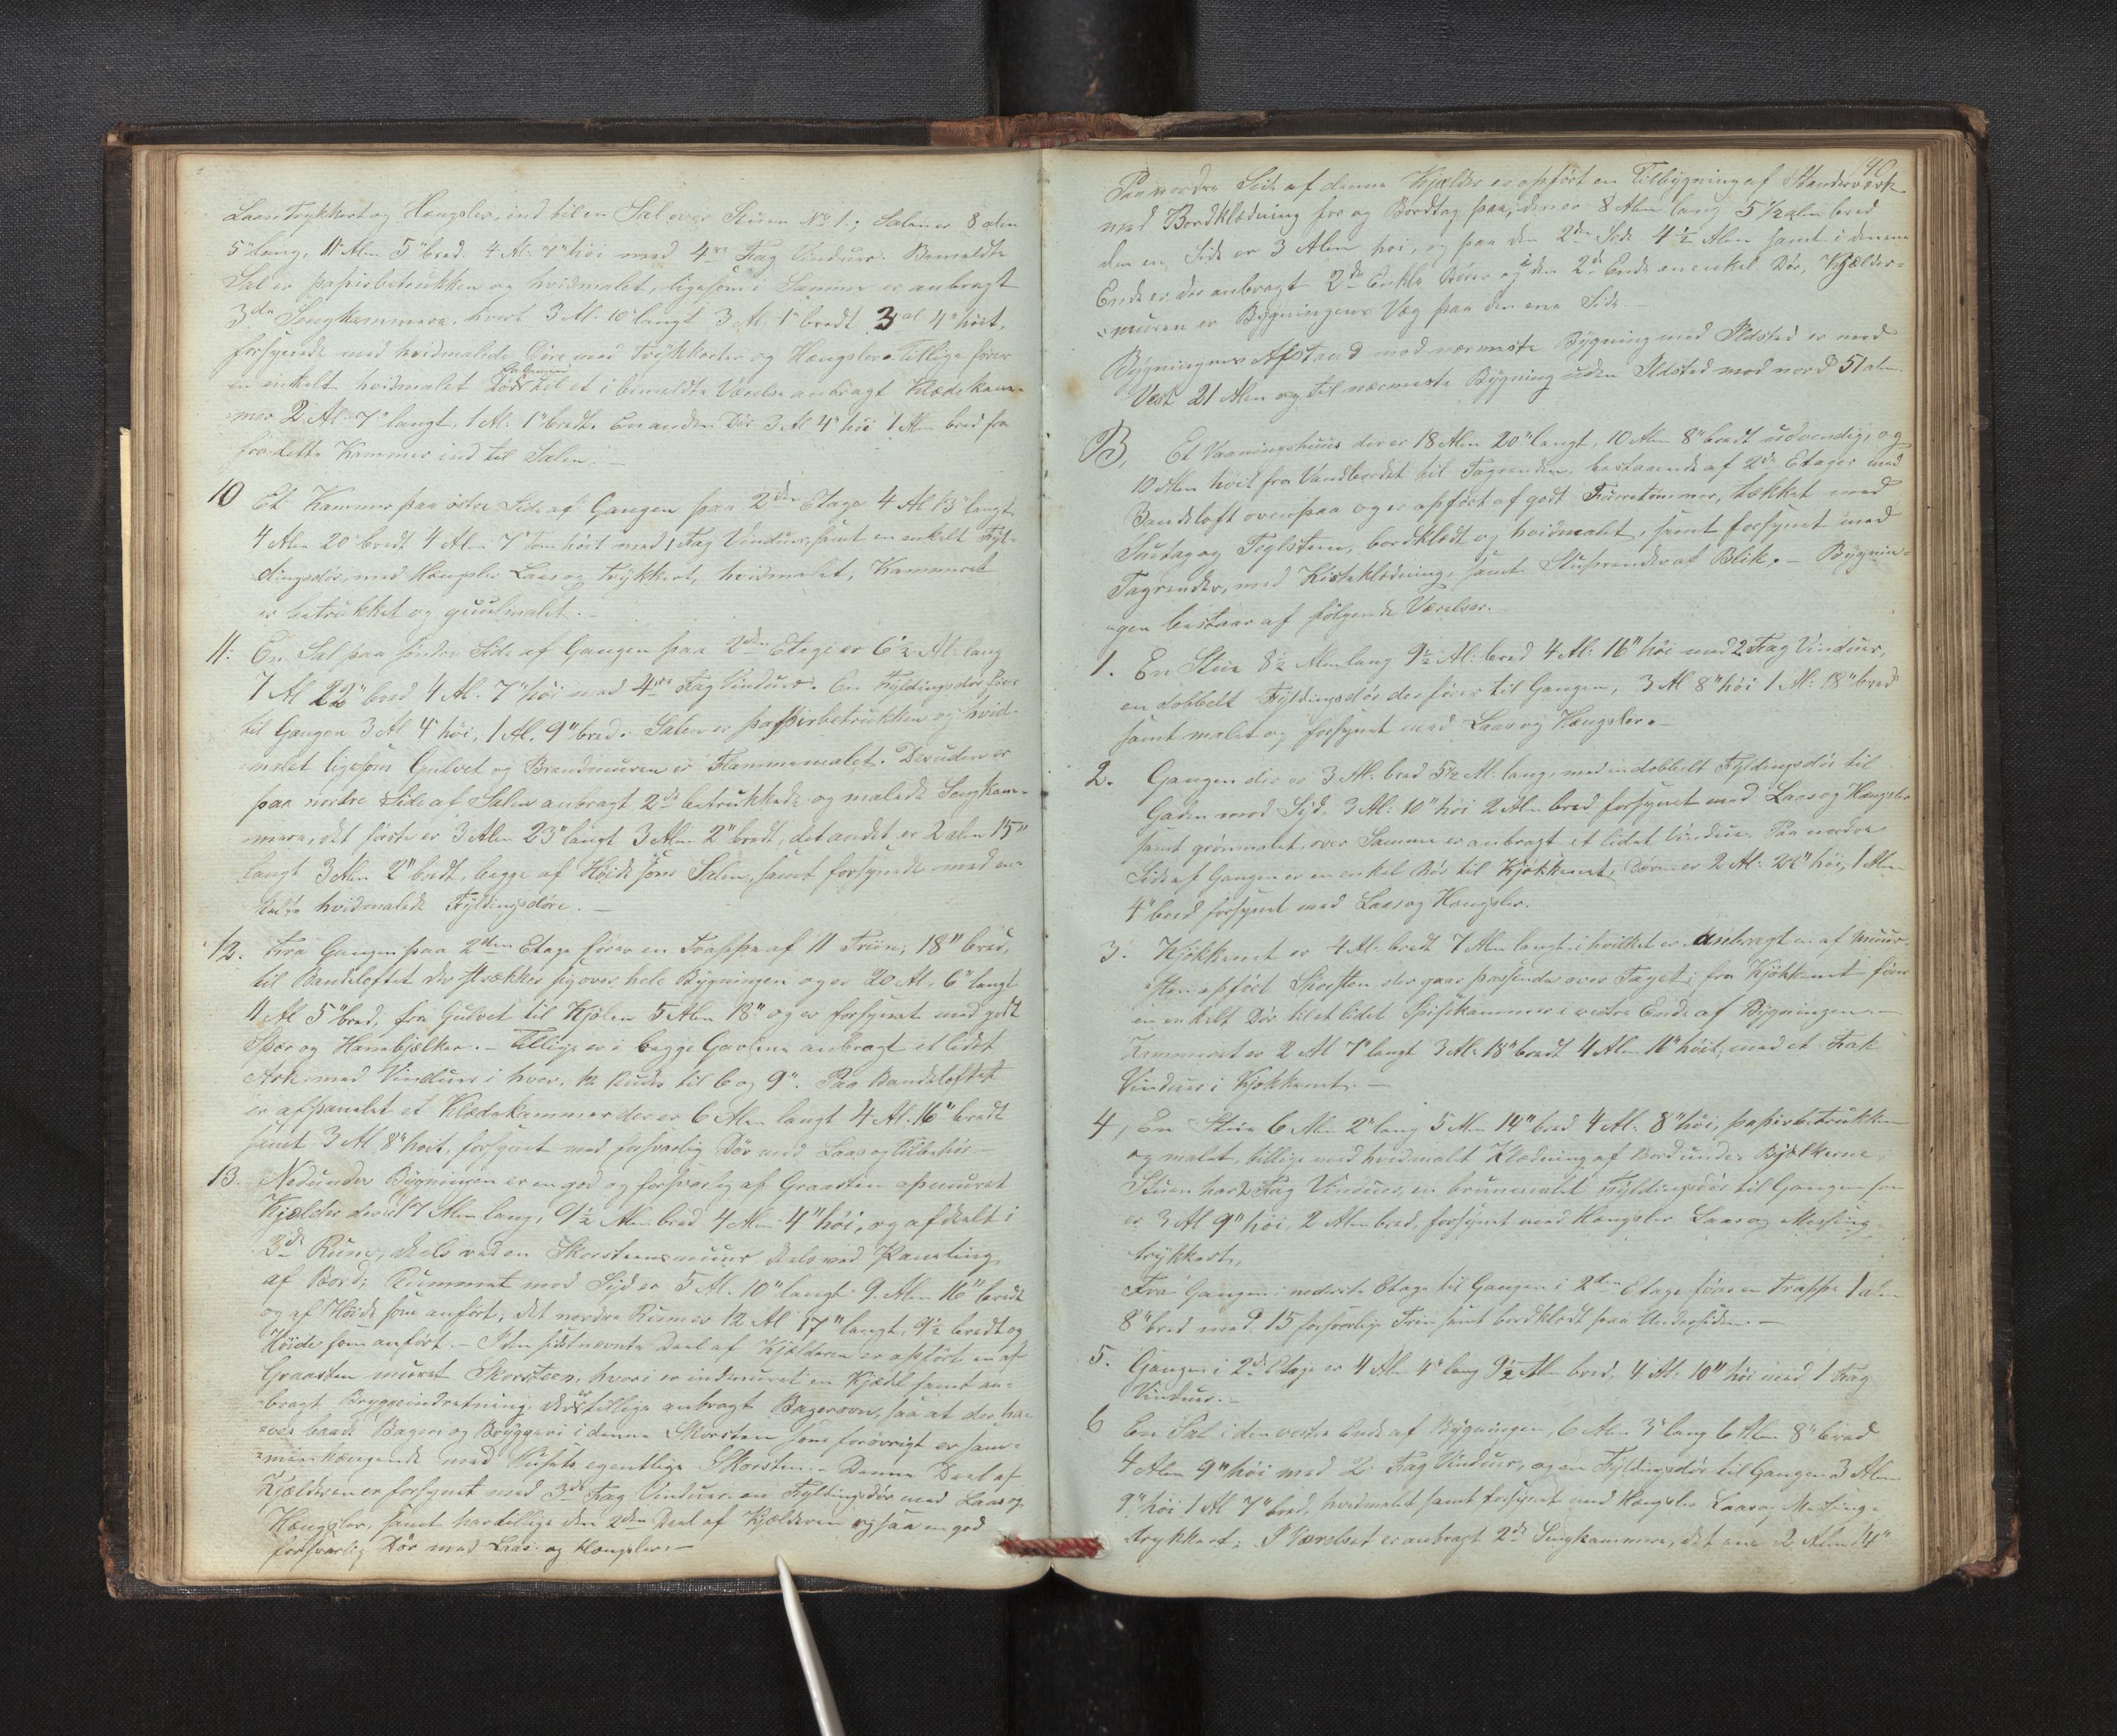 Laas Trykkert og Hængsler, ind til en Sal over Stuen No 1.; Salen er 8 alen
5" lang, 11 Alen 5" bred. 4 Al: 7" høi med 4re Fag Vinduer. Bemeldte
Sal er papirbetrukken og hvidmalet, ligesom i Samme er anbragt
3de Sengkammere, hvert 3 Al: 10" langt 3 Al: 1" bredt 3 al 4" høit,
forsynede med hvidmalede Døre med Trykkerter og Hængsler. Tillige fører
en enkelt hvidmalet Dør fra Gangen til et i bemeldte Værelse anbragt Klædekam-
mer 2 Al: 7" langt, 1 Al: 1" bredt. En anden Dør 3 Al 4" høi 1 Alen bred fra
fra dette Kammer ind til Salen. —
10 Et Kammer paa østre Side af Gangen paa 2den Etage 4 Al 13" langt
4 Alen 20" bredt 4 Alen 7" Tom høit med 1 Fag Vinduer, samt en enkelt Fyl-
dingsdør, med Hængsler Laas og Trykkert, hvidmalet, Kammeret
er betrukket og guulmalet. —
11. En Sal paa søndre Side af Gangen paa 2den Etage er 6½ Al: lang
7 Al 22" bred 4 Al: 7" høi med 4re Fag Vinduer. En Fyldingsdør fører
til Gangen 3 Al 4" høi, 1 Al. 9" bred. Salen er papirbetrukken og hvid-
malet ligesom Gulvet og Brandmuren er Flammemalet. Desuden er
paa nordre Side af Salen anbragt 2de betrukkede og malede Sengkam-
mere, det første er 3 Alen 23" langt 3 Alen 2" bredt, det andet er 2 alen 15"
langt 3 Alen 2" bredt, begge af Høide som Salen, samt forsynede med en-
kelte hvidmalede Fyldingsdøre. —
12. Fra Gangen paa 2den Etage fører en Trappe af 11 Trin, 18" bred,
til Bandsloftet der strækker sig over hele Bygningen og er 20 Al. 6" langt
11 Al 5" bred, fra Gulvet til Kjølen 5 Alen 18" og er forsynet med godt
Spær og Hanebjælker. — Tillige er i begge Gavlene anbragt et lidet
Ark med Vinduer i hver, 12 Ruder til 6 og 9". Paa Bandsloftet
er afpanelet et Klædekammer der er 6 Alen langt 4 Al. 16" bredt
samt 3 Al 8" høit, forsynet med forsvarlig Dør med Laas og tilbehør —
13. Nedunder Bygningen er en god og forsvarlig af Graasten opmuret
Kjelder der er 17 Alen lang, 9½ Alen bred 4 Alen 4" høi, og afdeelt i
3de Rum, deels ved en Skorsteensmuur deels ved Paneling
af Bord; Rummet mod Syd er 5 Al. 10" langt 9 Alen 16" bredt
og af Høide som anført; det nordre Rum er 12 Al 17" langt, 9½ bredt og
Høide som anført. — I den sidstnevnte Deel af Kjelderen er opført en af
Graasten muret Skorsteen, hvori er indmuret en Kjedel samt an-
bragt Bryggeindretning, der er tillige anbragt Bagerovn, saa at der ha-
ves baade Bageri og Bryggeri i denne Skorsten som forøvrigt er sam-
menhængende med Husets egentlige Skorsten. — Denne Deel af
Kjelderen er forsynet med 3de Fag Vinduer en Fyldingsdør med Laas og
Hængsler, samt har tillige den 2den Deel af Kjelderen ogsaa en god
forsvarlig Dør med Laas og Hængsler. —
40
Paa nordre Side af denne Kjelder er opført en Tilbygning af Standerverk
med Bordklædning for og Bordtag paa, den er 8 Alen lang 5½ alen bred
den en Side er 3 Alen høi, og paa den 2den Side 4½ Alen samt i denene
Ende er der anbragt 2de Enkle Dører og i den 2de Ende en enkel Dør, Kjelder-
muren er Bygningens Væg paa den ene Side. —
Bygningens Afstand mod nærmeste Bygning med Ildsted er mod
Vest 21 Alen og til nærmeste Bygning uden Ildsted mod nord 51 alen.
B, Et Vaaningshuus der er 18 Alen 20" langt, 10 Alen 8" bredt udvendig, og
10 Alen høit fra Vandbordet til Tagrenden, bestaaende af 2de Etager med
Bandsloft ovenpaa og er opført af godt Furretømmer, tækket med
Sutag og Teglsteen, bordklædt og hvidmalet, samt forsynet med
Tagrender, med Kisteklædning, samt Stuprender af Blik. — Bygnin-
gen bestaar af følgende Værelser.
1. En Stue 8½ Alen lang 9½ Al: bred 4 Al: 16" høi med 2 Fag Vinduer,
en dobbelt Fyldingsdør der fører til Gangen, 3 Al 8" høi 1 Al: 18" bred
samt malet og forsynet med Laas og Hængsler. —
2. Gangen der er 3 Al: bred 5½ Al: lang, med en dobbelt Fyldingsdør til
Gaden mod Syd, 3 Al: 10" høi 2 Alen bred forsynet med Laas og Hængsler
samt grønmalet, over Samme er anbragt et lidet Vindue. Paa nordre
Side af Gangen er en enkel Dør til Kjøkkenet, Døren er 2 Al: 22" høi, 1 Alen
4" bred forsynet med Laas og Hængsler.
3. Kjøkkenet er 4 Al: bredt 7 Alen langt, i hvilket er anbragt en af Muur-
steen opført Skorsten der gaar passende over Taget; fra Kjøkkenet fører
en enkelt Dør til et lidet Spisekammer i vestre Ende af Bygningen. —
Kammeret er 2 Al 7" langt 3 Al: 18" bredt 4 Alen 16" høit, med et Fak
Vinduer i Kjøkkenet. —
4, En Stue 6 Alen 2" lang 5 Alen 14" bred 4 Al: 8" høi, papirbetrukken
og malet, tillige med hvidmalt Klædning af Bord under Bjelkerne,
Stuen har 2 Fag Vinduer, en brunmalet Fyldingsdør til Gangen som
er 3 Al 9" høi, 2 Alen bred, forsynet med Hængsler Laas og Messing-
trykkert,
Fra Gangen i nederste Etage til Gangen i 2den Etage fører en Trappe 1 alen
8" bred med 15 forsvarlige Trin samt bordklædt paa Undersiden. —
5. Gangen i 2de Etage er 4 Alen 4" lang 9½ Alen bred, 4 Al: 10" høi med 1 Fag
Vinduer. —
6 En Sal i den vestre Ende af Bygningen, 6 Alen 3" lang 6 Alen 8" bred
4 Alen 9" høi med 2 Fag Vinduer, og en Fyldingsdør til Gangen 3 Alen
9" høi 1 Al 7" bred, hvidmalet samt forsynet med Hængsler Laas og Messing-
trykkert; I Værelset er anbragt 2de Sengkammere, det ene 2 Alen 14"